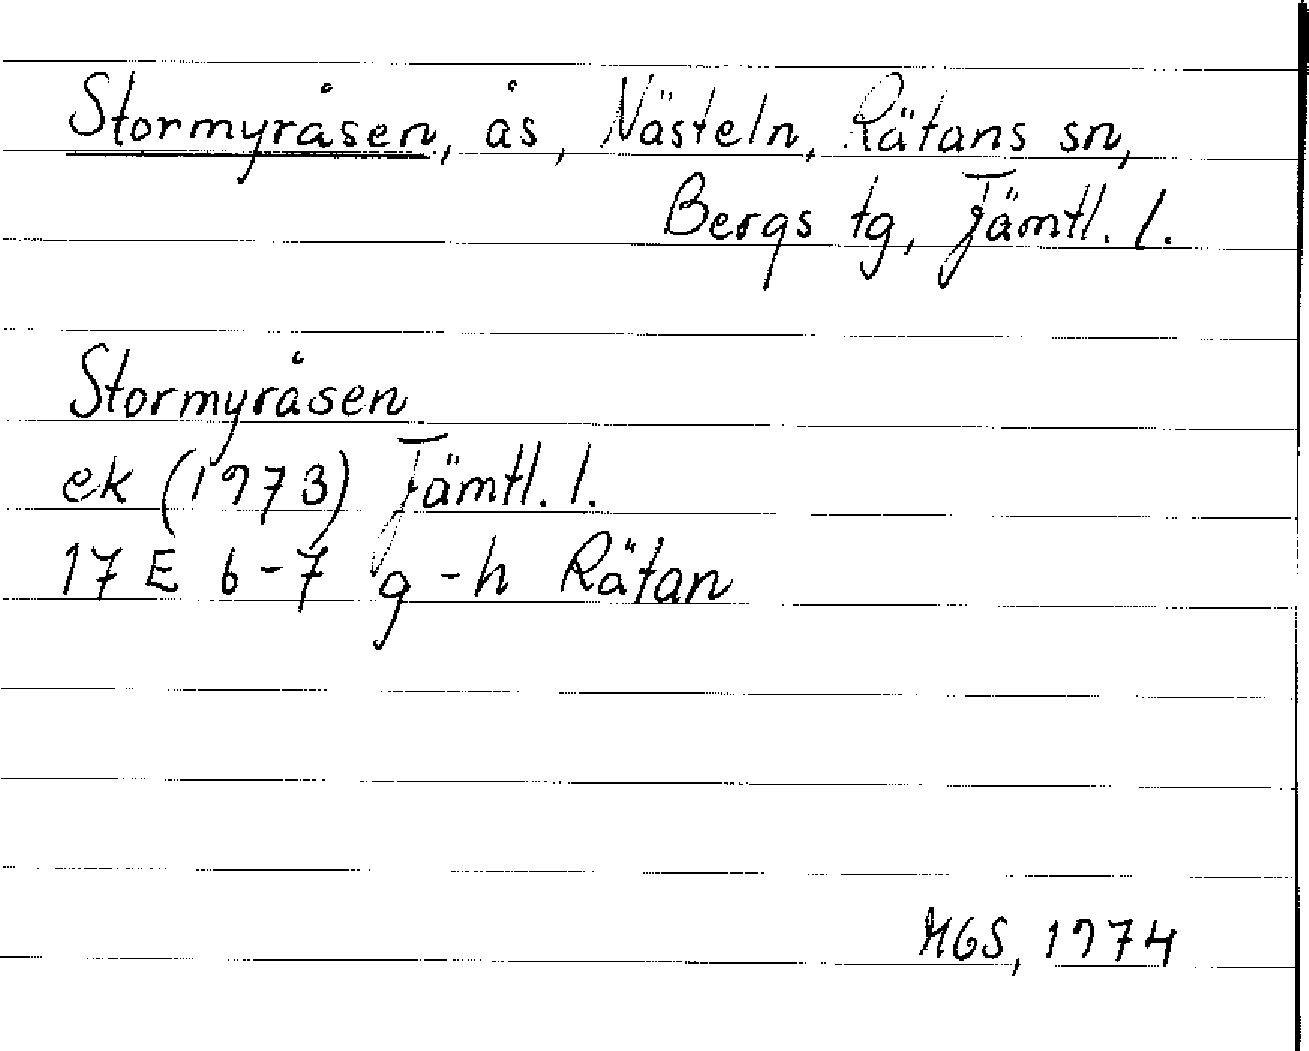 Stormyråsen, ås, Nästeln, Rätans sn,
Bergs tg, Jämtl. l.
Stormyråsen
ek (1973) Jämtl. l.
17 E 6-7 g-h Rätan
MGS, 1974